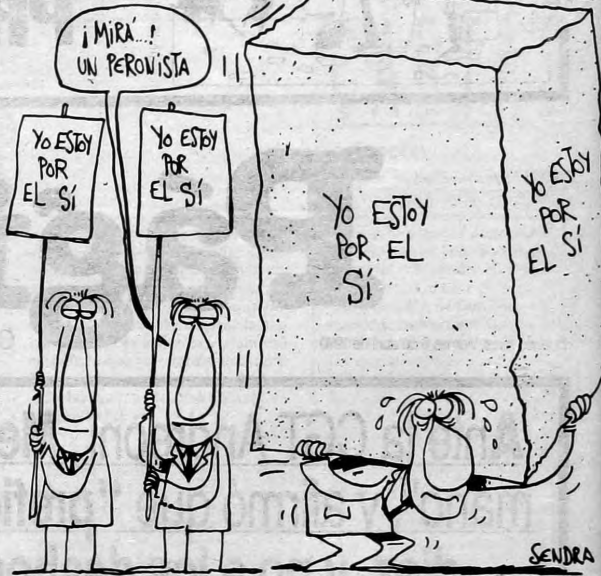 ¡MIRÁ...!
UN PERONISTA
YO ESTOY
POR
EL SÍ
YO ESTOY
POR
EL SÍ
YO ESTOY
POR EL
SÍ
YO ESTOY
POR
EL SÍ
SENDRA